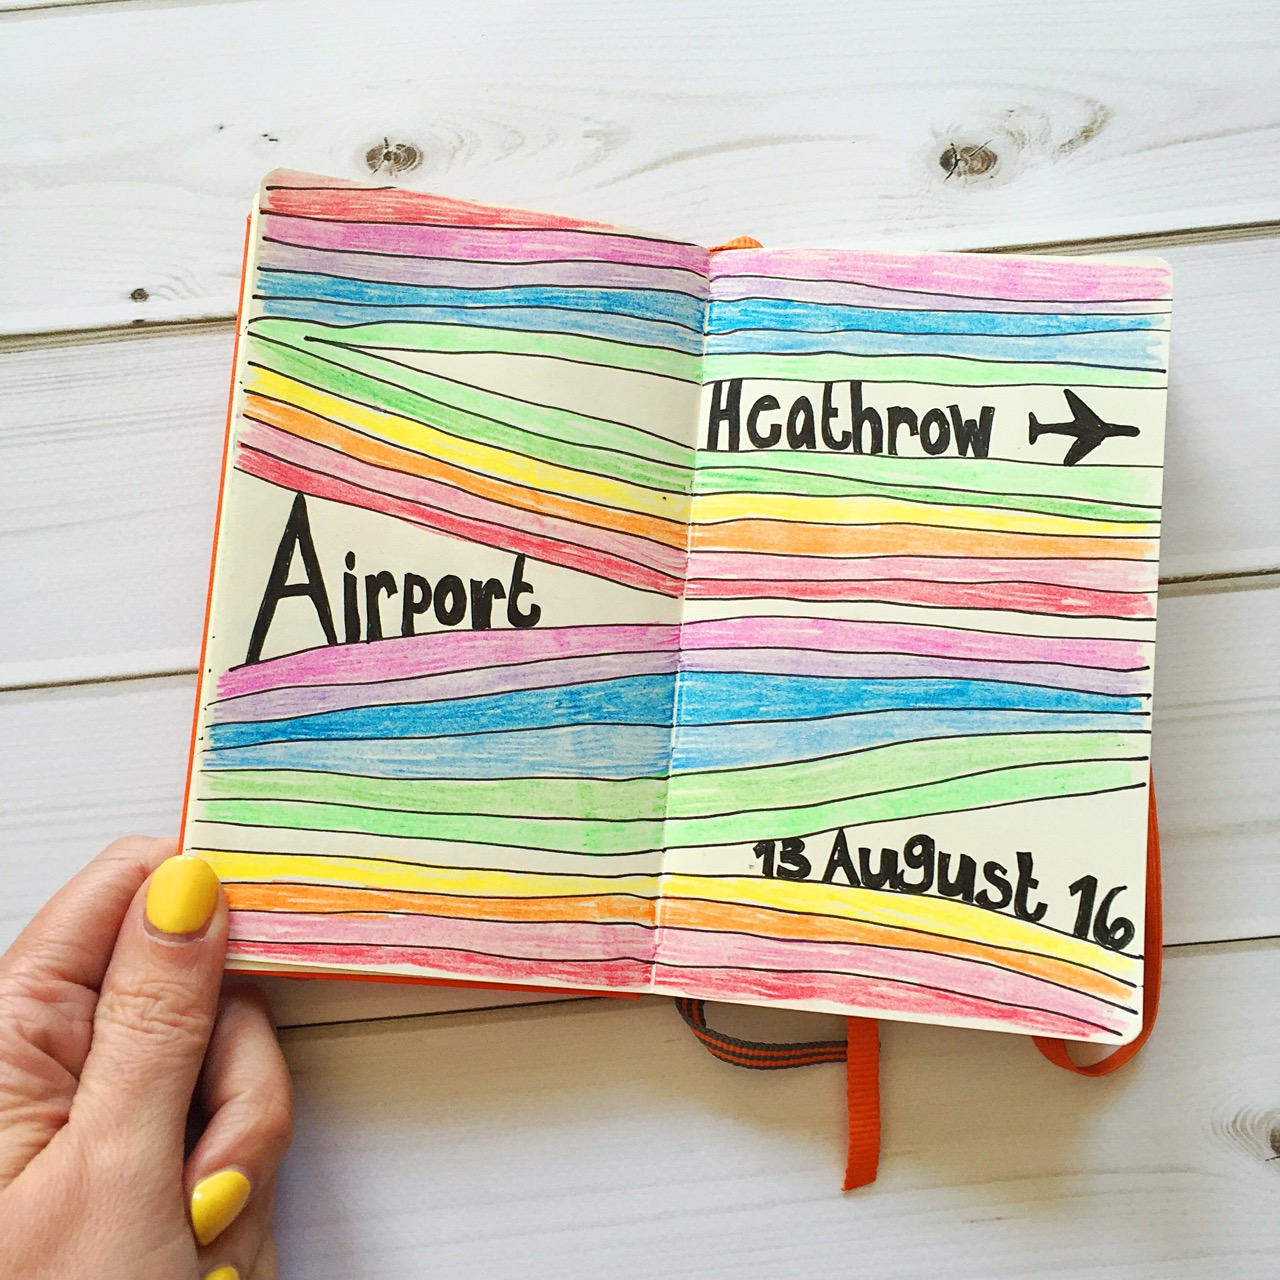 Heathrow
Airport
13 August 16